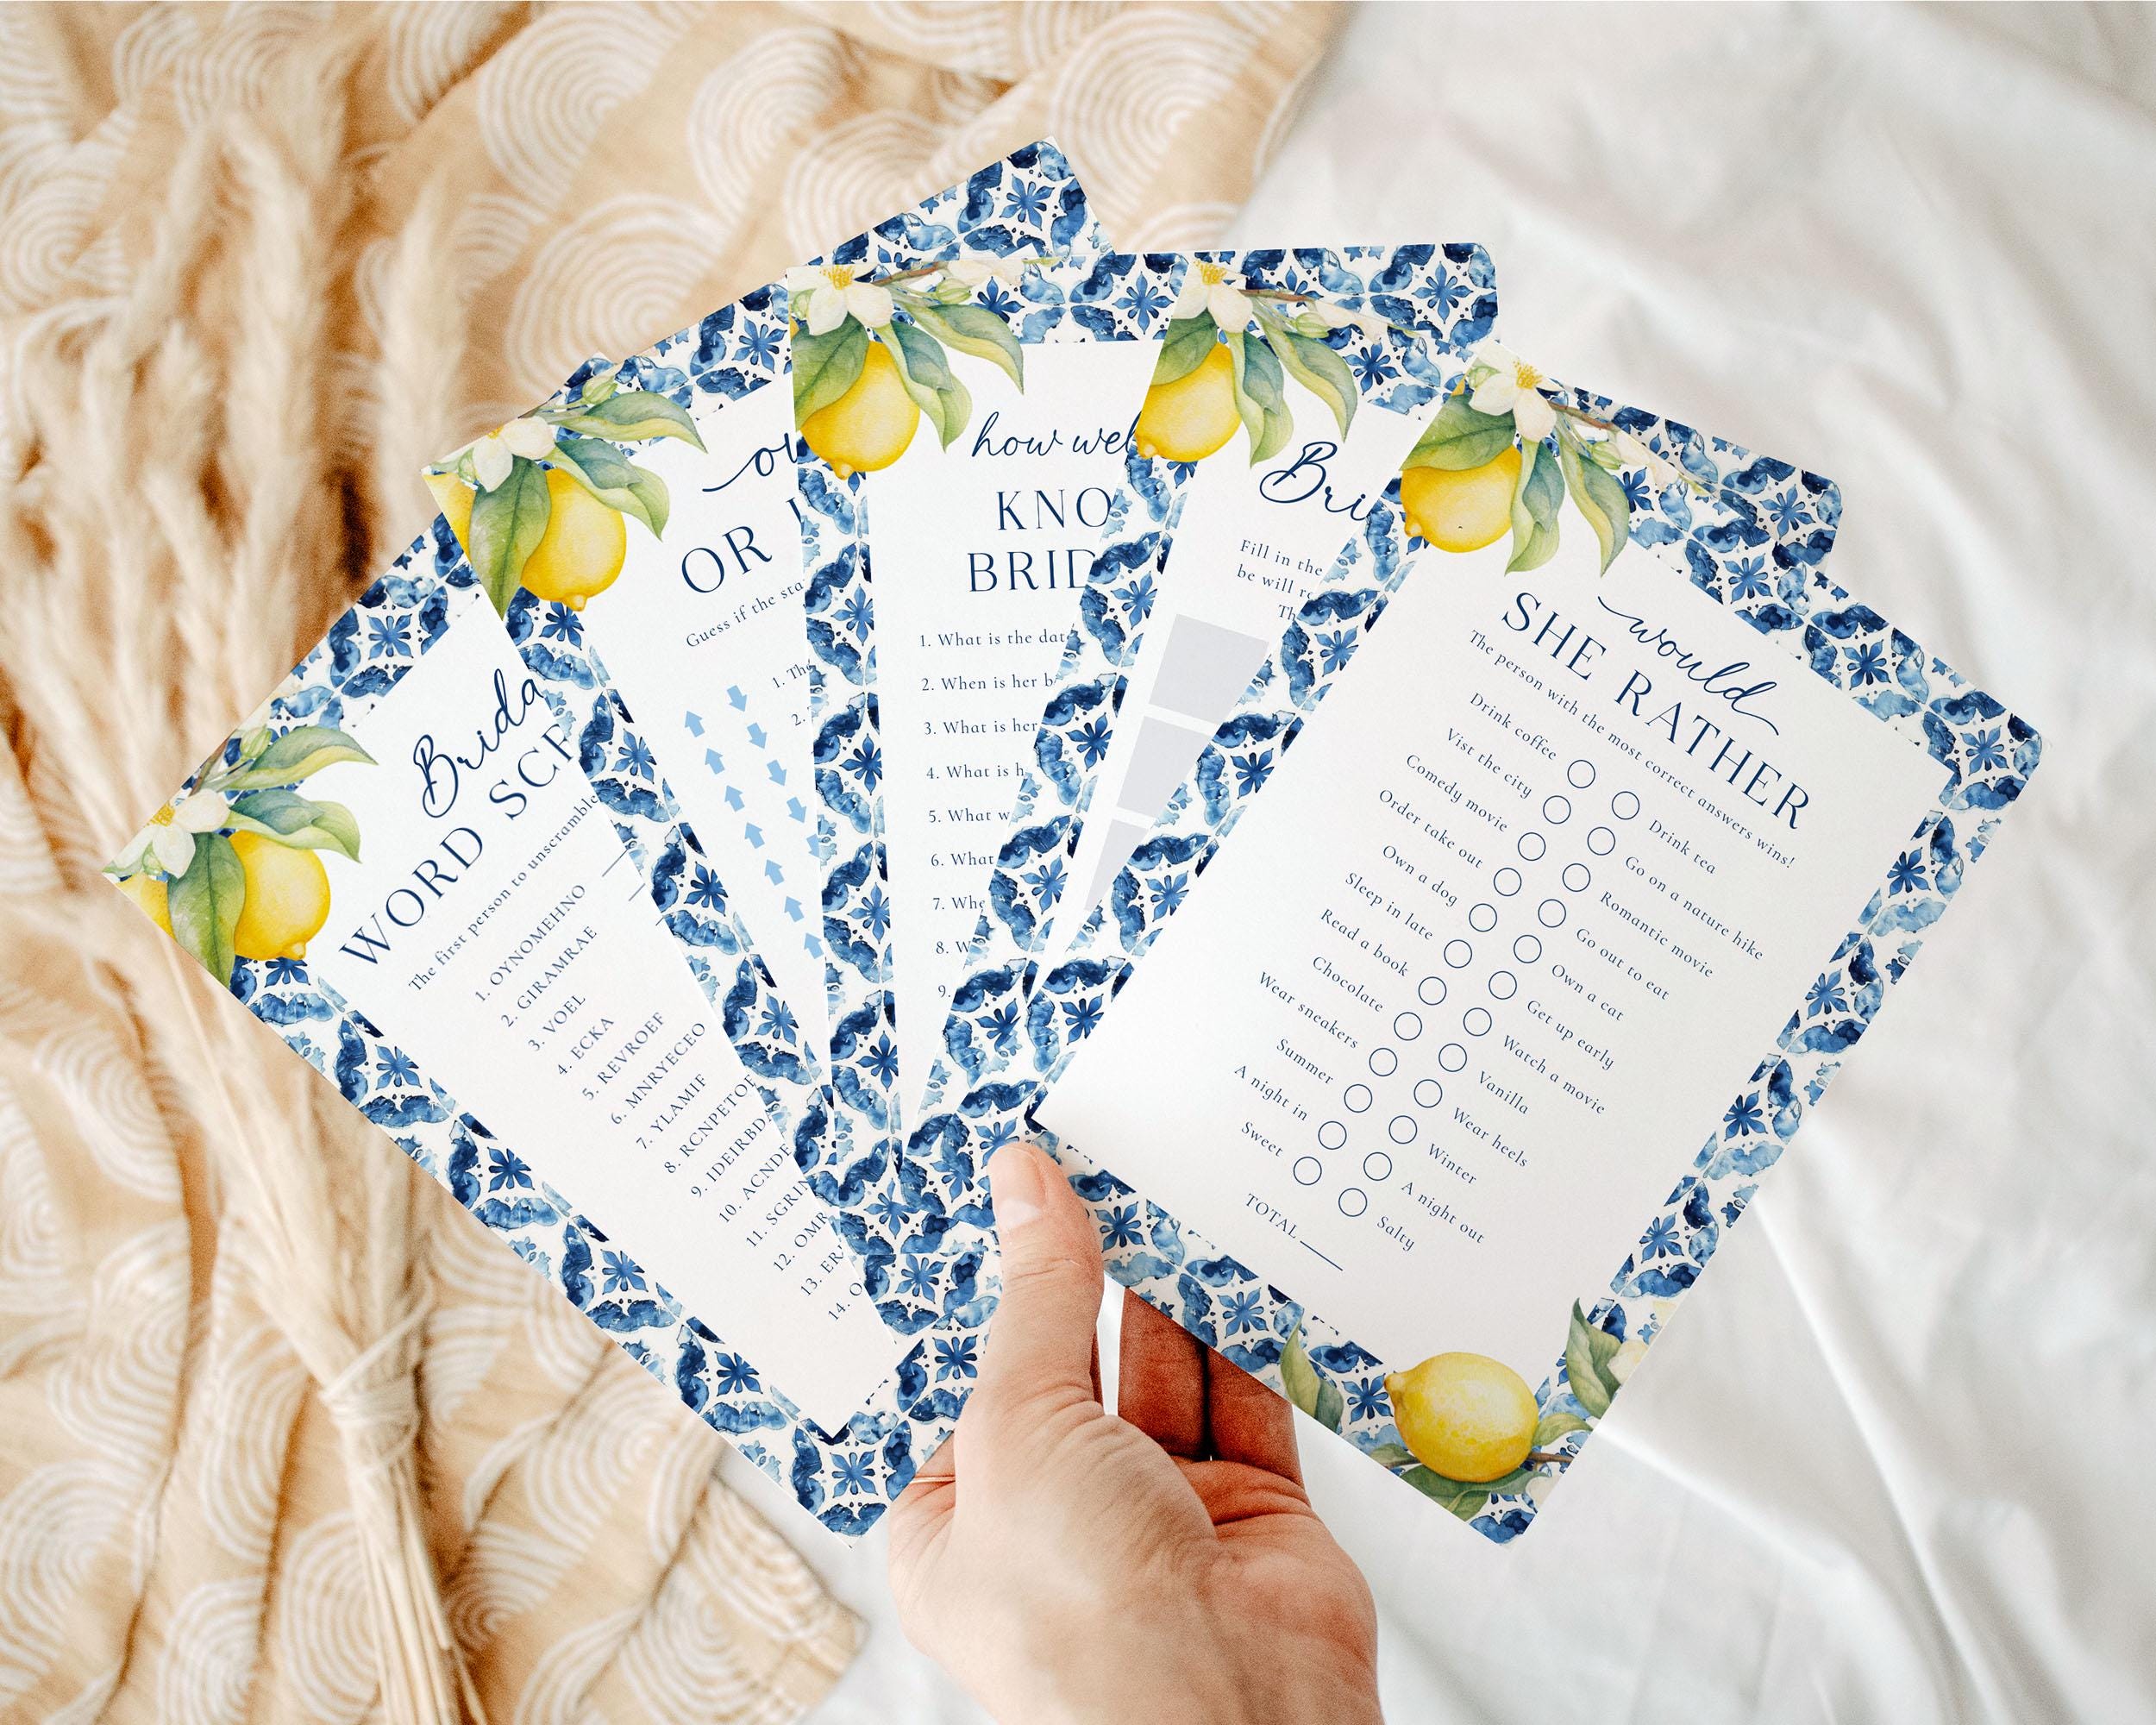 Brida
WORD SCR
The first person to unscramble
1. OYNOMEHNO
2. GIRAMRAE
3. VOEL
4. ECKA
5. REVROEF
6. MNRYECEO
7. YLAMIF
8. RCNPETOE
9. IDEIRBDA
10. ACNDE
11. SGRIN
12. OMR
13. ERA
14. O
OR
Guess if the sta
1. The
2.
how wel
KNO
BRID
1. What is the date
2. When is her b
3. What is her
4. What is h
5. What w
6. What
7. Whe
8. W
9.
Bri
Fill in the
be will ro
Th
would
SHE RATHER
The person with the most correct answers wins!
Drink coffee Drink tea
Vist the city Go on a nature hike
Comedy movie Romantic movie
Order take out Go out to eat
Own a dog Own a cat
Sleep in late Get up early
Read a book Watch a movie
Chocolate Vanilla
Wear sneakers Wear heels
Summer Winter
A night in A night out
Sweet Salty
TOTAL